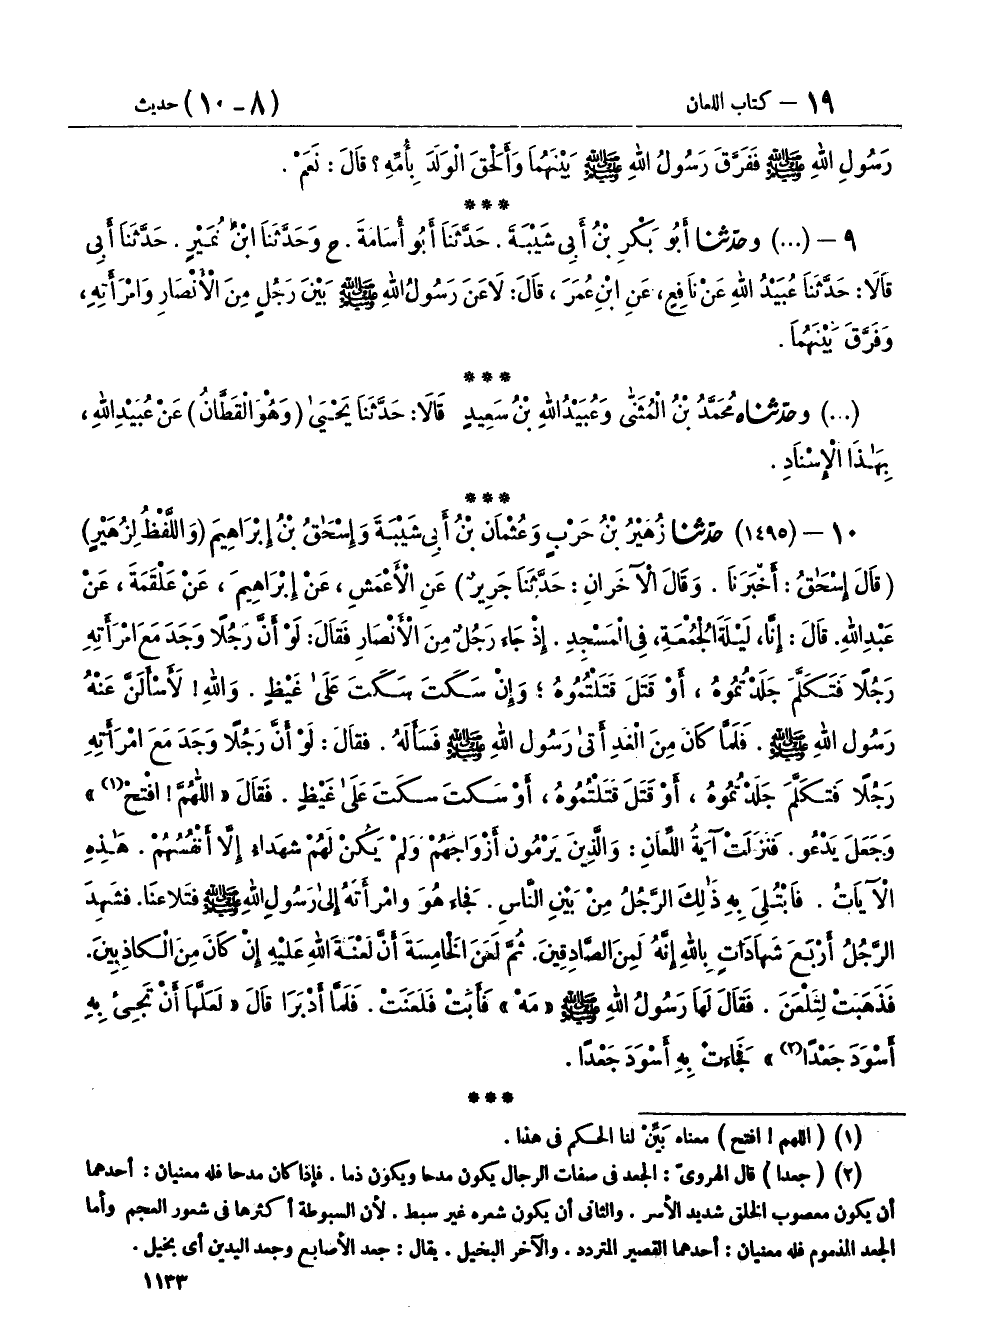 ١٩ – كتاب اللعان (٨-١٠) حديث
رَسُولِ اللهِ ﷺ فَفَرَّقَ رَسُولُ اللهِ ﷺ بَيْنَهُمَا وَأَلْحَقَ الْوَلَدَ بِأُمِّهِ؟ قَالَ : نَعَمْ .
***
٩ – (...) وحَدّثنا أَبُو بَكْرِ بْنُ أَبِي شَيْبَةَ . حَدَّثَنَا أَبُو أُسَامَةَ . ح وَحَدَّثَنَا ابْنُ نُمَيْرٍ . حَدَّثَنَا أَبِي
قَالَا : حَدَّثَنَا عُبَيْدُ اللهِ عَنْ نَافِعٍ، عَنِ ابْنِ عُمَرَ ، قَالَ: لَاعَنَ رَسُولُ اللهِ ﷺ بَيْنَ رَجُلٍ مِنَ الْأَنْصَارِ وَامْرَأَتِهِ،
وَفَرَّقَ بَيْنَهُمَا .
***
(...) وحَدّثناه مُحَمَّدُ بْنُ الْمُثَنَّى وَعُبَيْدُ اللهِ بْنُ سَعِيدٍ قَالَا: حَدَّثَنَا يَحْيَىٰ (وَهُوَ الْقَطَّانُ) عَنْ عُبَيْدِ اللهِ ،
بِهَـٰذَا الْإِسْنَادِ .
***
١٠ – (١٤٩٥) حَدّثنا زُهَيْرُ بْنُ حَرْبٍ وَعُثْمَانُ بْنُ أَبِي شَيْبَةَ وَإِسْحَاقُ بْنُ إِبْرَاهِيمَ (وَاللَّفْظُ لِزُهَيْرٍ)
(قَالَ إِسْحَاقُ : أَخْبَرَنَا . وَقَالَ الْآخَرَانِ : حَدَّثَنَا جَرِيرٌ) عَنِ الْأَعْمَشِ ، عَنْ إِبْرَاهِيمَ ، عَنْ عَلْقَمَةَ ، عَنْ
عَبْدِ اللهِ. قَالَ : إِنَّا، لَيْلَةَ الْجُمُعَةِ، فِي الْمَسْجِدِ . إِذْ جَاءَ رَجُلٌ مِنَ الْأَنْصَارِ فَقَالَ: لَوْ أَنَّ رَجُلًا وَجَدَ مَعَ امْرَأَتِهِ
رَجُلًا فَتَكَلَّمَ جَلَدْتُمُوهُ ، أَوْ قَتَلَ قَتَلْتُمُوهُ ؛ وَإِنْ سَكَتَ سَكَتَ عَلَىٰ غَيْظٍ . وَاللهِ ! لَأَسْأَلَنَّ عَنْهُ
رَسُولَ اللهِ ﷺ . فَلَمَّا كَانَ مِنَ الْغَدِ أَتَىٰ رَسُولَ اللهِ ﷺ فَسَأَلَهُ . فَقَالَ : لَوْ أَنَّ رَجُلًا وَجَدَ مَعَ امْرَأَتِهِ
رَجُلًا فَتَكَلَّمَ جَلَدْتُمُوهُ ، أَوْ قَتَلَ قَتَلْتُمُوهُ ، أَوْ سَكَتَ سَكَتَ عَلَىٰ غَيْظٍ . فَقَالَ « اللَّهُمَّ ! افْتَحْ(١) »
وَجَعَلَ يَدْعُو . فَنَزَلَتْ آيَةُ اللِّعَانِ : وَالَّذِينَ يَرْمُونَ أَزْوَاجَهُمْ وَلَمْ يَكُنْ لَهُمْ شُهَدَاءُ إِلَّا أَنْفُسُهُمْ . هَـٰذِهِ
الْآيَاتُ . فَابْتُلِيَ بِهِ ذَٰلِكَ الرَّجُلُ مِنْ بَيْنِ النَّاسِ . فَجَاءَ هُوَ وَامْرَأَتُهُ إِلَىٰ رَسُولِ اللهِ ﷺ فَتَلَاعَنَا. فَشَهِدَ
الرَّجُلُ أَرْبَعَ شَهَادَاتٍ بِاللهِ إِنَّهُ لَمِنَ الصَّادِقِينَ. ثُمَّ لَعَنَ الْخَامِسَةَ أَنَّ لَعْنَةَ اللهِ عَلَيْهِ إِنْ كَانَ مِنَ الْكَاذِبِينَ.
فَذَهَبَتْ لِتَلْعَنَ . فَقَالَ لَهَا رَسُولُ اللهِ ﷺ « مَهْ » فَأَبَتْ فَلَعَنَتْ . فَلَمَّا أَدْبَرَا قَالَ « لَعَلَّهَا أَنْ تَجِيءَ بِهِ
أَسْوَدَ جَعْدًا(٢) » فَجَاءَتْ بِهِ أَسْوَدَ جَعْدًا .
***
(١) ( اللهم ! افتح ) معناه بَيِّنْ لنا الحكم فى هذا .
(٢) ( جعدا ) قال الهروىّ : الجعد فى صفات الرجال يكون مدحا ويكون ذما . فإذا كان مدحا فله معنيان : أحدهما
أن يكون معصوب الخلق شديد الأسر . والثانى أن يكون شعره غير سبط . لأن السبوطة أكثرها فى شعور العجم وأما
الجعد المذموم فله معنيان : أحدهما القصير المتردد . والآخر البخيل . يقال : جعد الأصابع وجعد اليدين أى بخيل .
١١٣٣